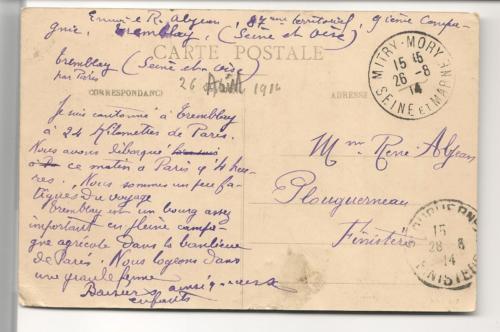 Envoi de R. Aljean, 87eme territorial, 9ième compa-
gnie, Tremblay, (Seine et Oise)
CARTE POSTALE
Tremblay (Seine et Oise)
par Paris
26 Août 1914
CORRESPONDANCE
ADRESSE
MITRY-MORY
15 15
26 -8
14
SEINE ET MARNE
Je suis cantonné à Tremblay
à 24 kilomètres de Paris.
Nous avons débarqué
ce matin à Paris à 4 heu-
res. Nous sommes un peu fa-
tigués du voyage
Tremblay est un bourg assez
important en pleine campa-
gne agricole dans la banlieue
de Paris. Nous logeons dans
une grande ferme
Baisers
enfants
Mme René Aljean
Plouguerneau
Finistère
PLOUGUERNEAU
15
28 8
14
FINISTERE